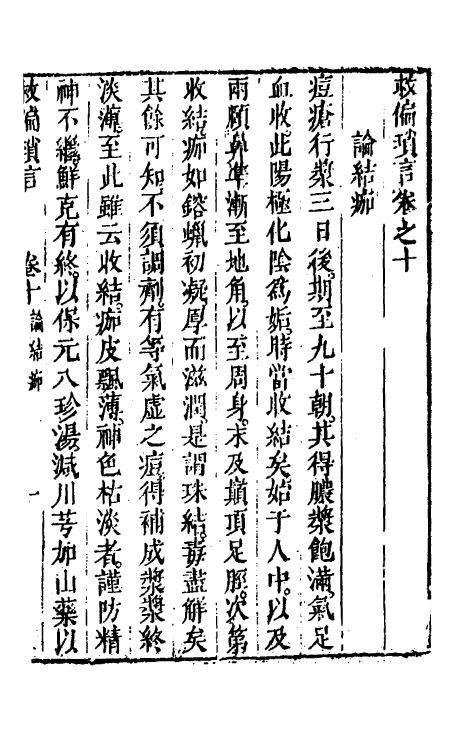 救偏瑣言卷之十
論結痂
痘瘡行漿三日後期至九十朝其得膿漿飽滿氣足
血收此陽極化陰爲姤時當收結矣始于人中以及
兩顴鼻準漸至地角以至周身末及巔頂足脛次第
收結痂如鎔蠟初凝厚而滋潤是謂珠結毒盡解矣
其餘可知不須調劑有等氣虛之痘得補成漿漿終
淡薄至此雖云收結痂皮飄薄神色枯淡者謹防精
神不繼鮮克有終以保元八珍湯減川芎加山藥以
救偏瑣言 卷十 論結痂 一